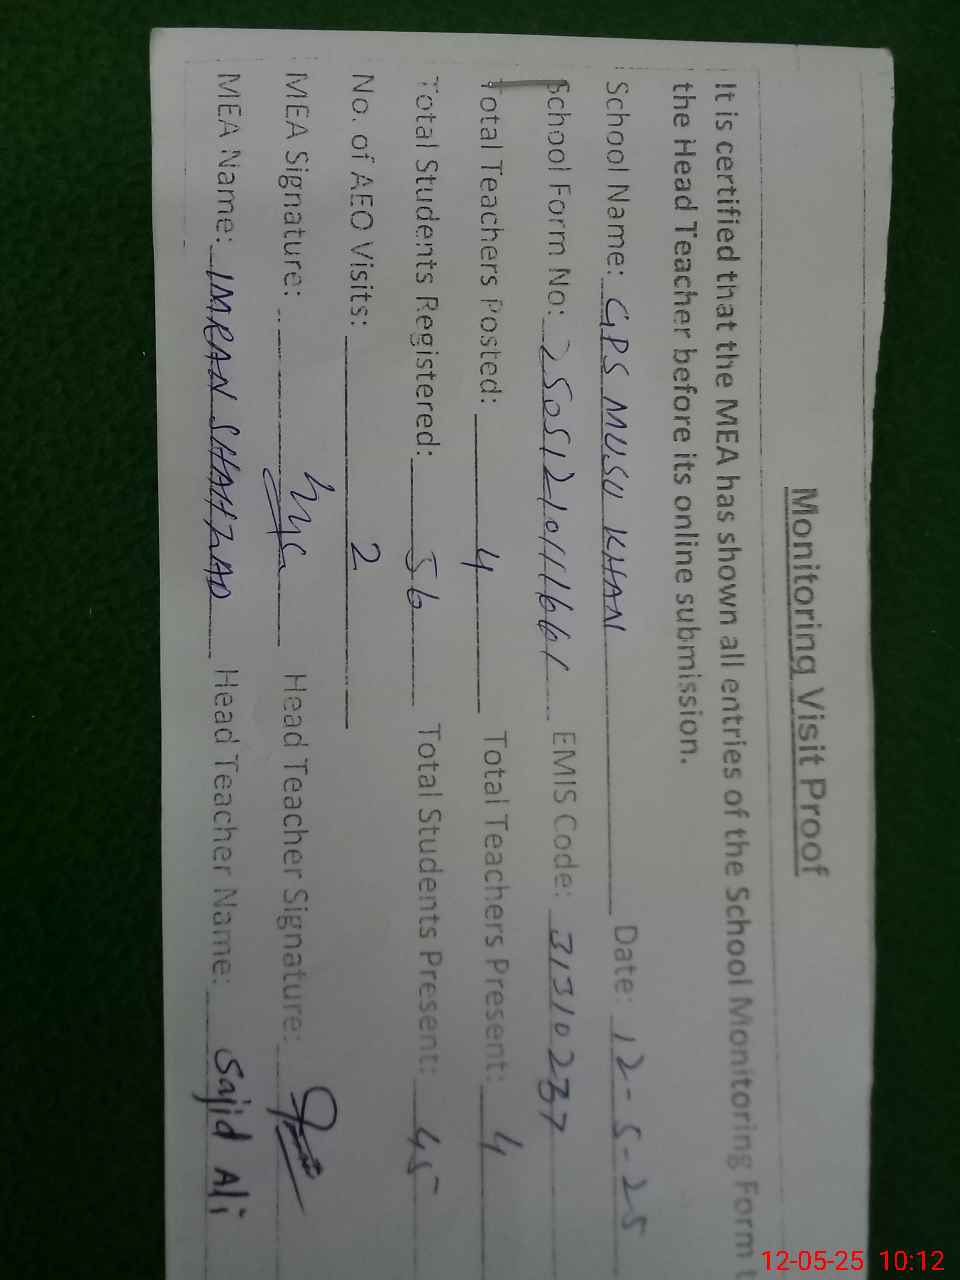 Monitoring Visit Proof
It is certified that the MEA has shown all entries of the School Monitoring Form t
the Head Teacher before its online submission.
School Name: GPS MUSU KHAN Date: 12-5-25
School Form No: 250512101661 EMIS Code: 31310237
Total Teachers Posted: 4 Total Teachers Present: 4
Total Students Registered: 56 Total Students Present: 45
No. of AEO Visits: 2
MEA Signature: Head Teacher Signature:
MEA Name: IMRAN SHAHZAD Head Teacher Name: Sajid Ali
12-05-25 10:12